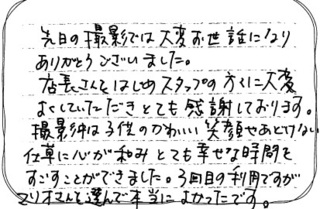 先日の撮影では大変お世話になり
ありがとうございました。
店長さんをはじめスタッフの方々に大変
よくしていただきとても感謝しております。
撮影中は子供のかわいい笑顔やあどけない
仕草に心が和みとても幸せな時間を
すごすことができました。3回目の利用ですが
マリオさんを選んで本当によかったです。